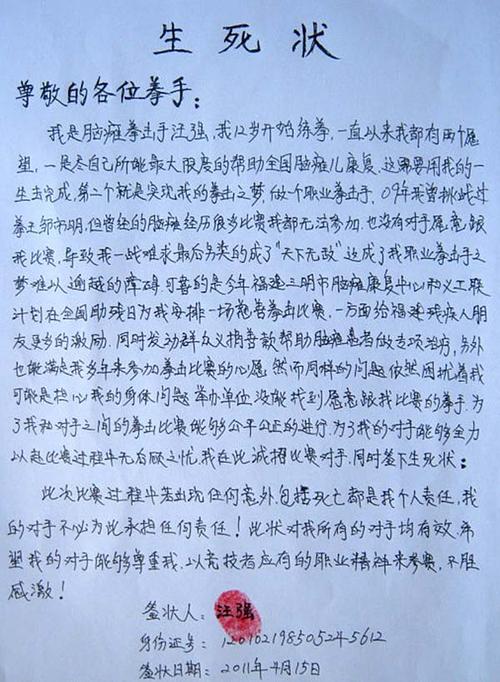 生死状
尊敬的各位拳手：
我是脑瘫拳击手汪强，我12岁开始练拳，一直以来我都有两个愿
望，一是尽自己所能最大限度的帮助全国脑瘫儿康复，这需要用我的一
生去完成。第二个就是实现我的拳击之梦，做个职业拳击手，09年我曾挑战过
拳王邹市明，但曾经的脑瘫经历很多比赛我都无法参加，也没有对手愿意跟
我比赛，导致我一战难求最后另类的成了“天下无敌”这成了我职业拳击手之
梦难以逾越的障碍，可喜的是今年福建三明市脑瘫康复中心和义工联
计划在全国助残日为我安排一场慈善拳击比赛，一方面给福建残疾人朋
友更多的激励，同时发动群众义捐善款帮助脑瘫患者做专项治疗，另外
也能满足我多年来参加拳击比赛的心愿，然而同样的问题依然困扰着我
可能是担心我的身体问题举办单位没能找到愿意跟我比赛的拳手，为
了我和对手之间的拳击比赛能够公平公正的进行，为了我的对手能够全力
以赴比赛过程中无后顾之忧，我在此诚招比赛对手，同时签下生死状：
此次比赛过程中若出现任何意外，包括死亡都是我个人责任，我
的对手不必为此承担任何责任！此状对我所有的对手均有效，希
望我的对手能够尊重我，以竞技者应有的职业精神来参赛，不胜
感激！
签状人：汪强
身份证号：120102198505245612
签状日期：2011年4月15日